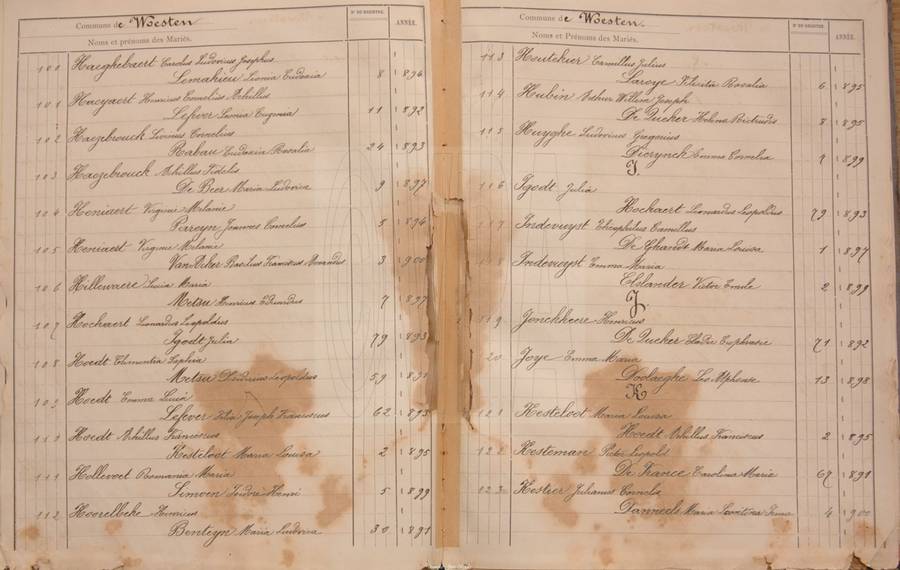 Commune de Woesten.
Nos DE REGISTRE.
ANNÉE.
Noms et prénoms des Mariés.
100 Haeghebaert Carolus Ludovicus Josephus
Lemahieu Leonia Eudoxia 8 1894
101 Haeyaert Henricus Cornelius Achilles
Lefever Lucia Eugenia 11 1892
102 Haezebrouck Livinus Cornelius
Rabau Eudoxia Rosalia 24 1893
103 Haezebrouck Achillus Fidelis
De Beer Maria Ludovica 9 1897
104 Heniaert Virginie Melanie
Perreyn Joannes Cornelius 5 1894
105 Heniaert Virginie Melanie
Van Acker Basilius Franciscus Amandus 3 1900
106 Hillewaere Lucia Maria
Metsu Henricus Eduardus 7 1897
107 Hochaert Leonardus Leopoldus
Igodt Julia 79 1893
108 Hoedt Clementia Sophia
Metsu Leopoldus 59 1891
109 Hoedt Emma Lucia
Lefever Felix Joseph Franciscus 62 1893
110 Hoedt Achillus Franciscus
Kesteloot Maria Louisa 2 1895
111 Hollevoet Romania Maria
Simoen Isidore Henri 5 1899
112 Hoorelbeke Henricus
Benteyn Maria Ludovica 30 1891
Commune de Woesten.
Nos DE REGISTRE.
ANNÉE.
Noms et Prénoms des Mariés.
113 Houtekier Camillus Julius
Laroye Felicita Rosalia 6 1895
114 Hubin Arthur Willem Joseph
De Zucker Helena Rictrudis 8 1895
115 Huyghe Ludovicus Gregorius
Dierynck Emma Cornelia 9 1899
I.
116 Igodt Julia
Hochaert Leonardus Leopoldus 79 1893
117 Indevuyst Theophilus Camillus
De Grande Maria Louisa 1 1897
118 Indevuyst Emma Maria
Elslander Victor Emile 2 1899
J.
119 Jonckheere Henricus
De Zucker Elodie Euphrasie 71 1892
120 Joye Emma Maria
Doolaeghe Leo Alphonse 13 1898
K
121 Kesteloot Maria Louisa
Hoedt Achillus Franciscus 2 1895
122 Kosteman Pieter Leopold
De France Carolina Maria 67 1891
123 Kestier Julianus Cornelis
Danneels Maria 4 1900